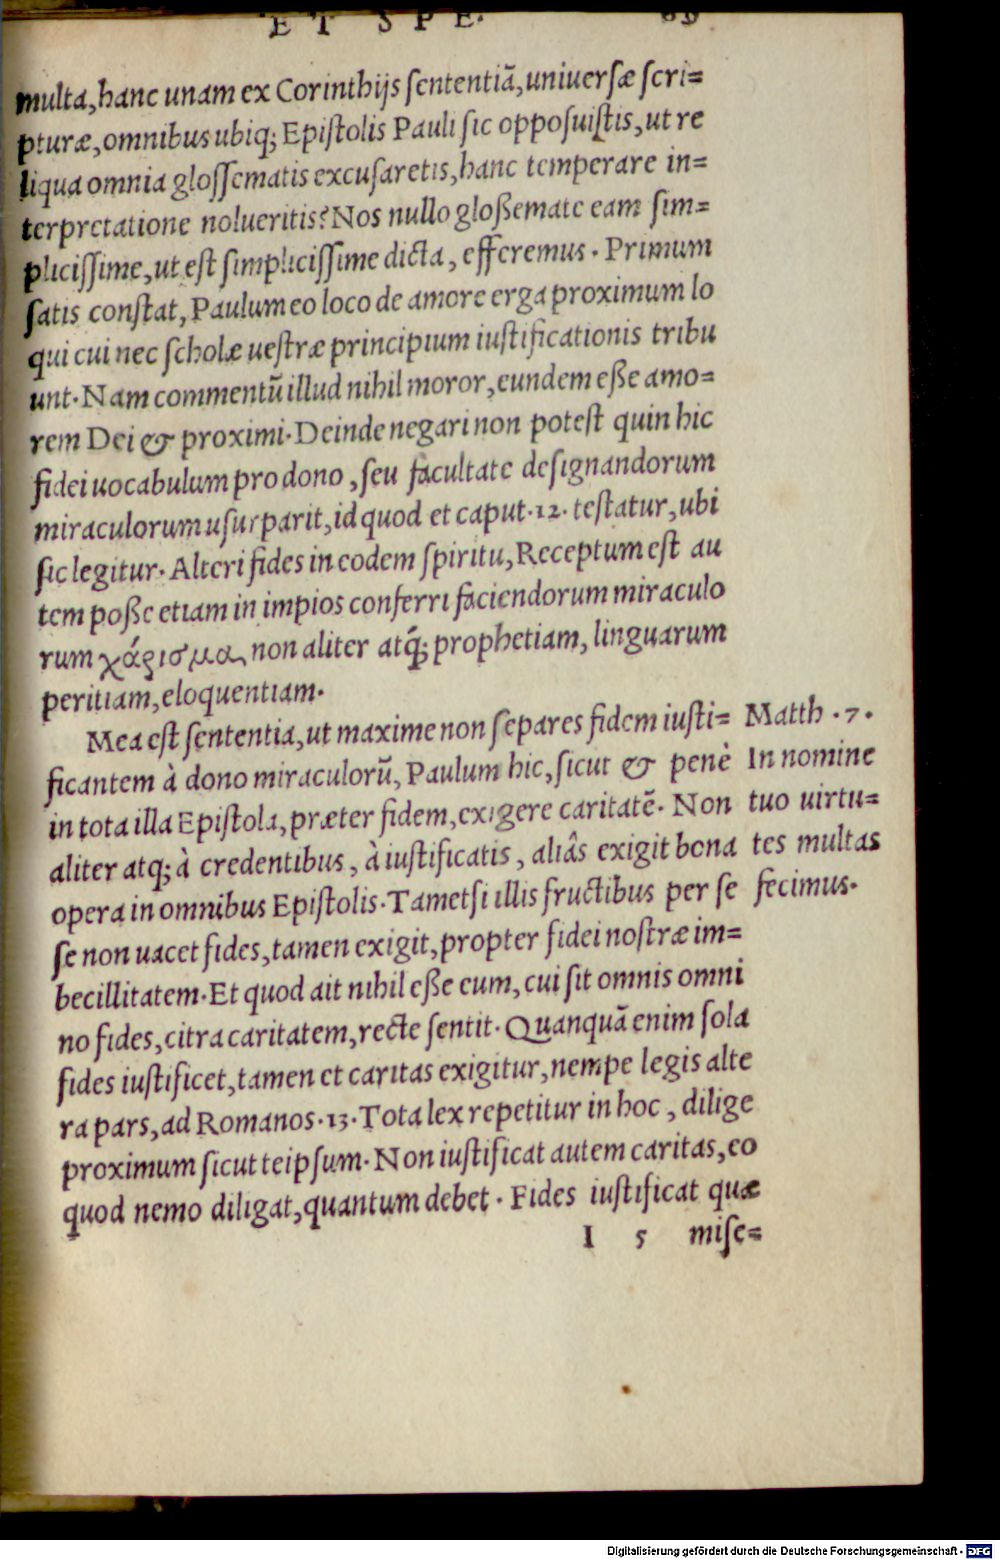 ET SPE.
multa, hanc unam ex Corinthijs sententiā, uniuersæ scri=
pturæ, omnibus ubiq; Epistolis Pauli sic opposuistis, ut re
liqua omnia glossematis excusaretis, hanc temperare in=
terpretatione nolueritis? Nos nullo gloßemate eam sim=
plicissime, ut est simplicissime dicta, efferemus. Primum
satis constat, Paulum eo loco de amore erga proximum lo
qui cui nec scholæ uestræ principium iustificationis tribu
unt. Nam commentū illud nihil moror, eundem eße amo=
rem Dei & proximi. Deinde negari non potest quin hic
fidei uocabulum pro dono, seu facultate designandorum
miraculorum usurparit, id quod et caput.12. testatur, ubi
sic legitur. Alteri fides in eodem spiritu, Receptum est au
tem poße etiam in impios conferri faciendorum miraculo
rum χάρισμα, non aliter atq́; prophetiam, linguarum
peritiam, eloquentiam.
Mea est sententia, ut maxime non separes fidem iusti=
ficantem à dono miraculorū, Paulum hic, sicut & penè
in tota illa Epistola, præter fidem, exigere caritatē. Non
aliter atq; à credentibus, à iustificatis, aliâs exigit bona
opera in omnibus Epistolis. Tametsi illis fructibus per se
se non uacet fides, tamen exigit, propter fidei nostræ im=
becillitatem. Et quod ait nihil eße eum, cui sit omnis omni
no fides, citra caritatem, recte sentit. Quanquā enim sola
fides iustificet, tamen et caritas exigitur, nempe legis alte
ra pars, ad Romanos.13. Tota lex repetitur in hoc, dilige
proximum sicut teipsum. Non iustificat autem caritas, eo
quod nemo diligat, quantum debet. Fides iustificat quæ
I 5 mise=
Matth.7.
In nomine
tuo uirtu=
tes multas
fecimus.
Digitalisierung gefördert durch die Deutsche Forschungsgemeinschaft - DFG